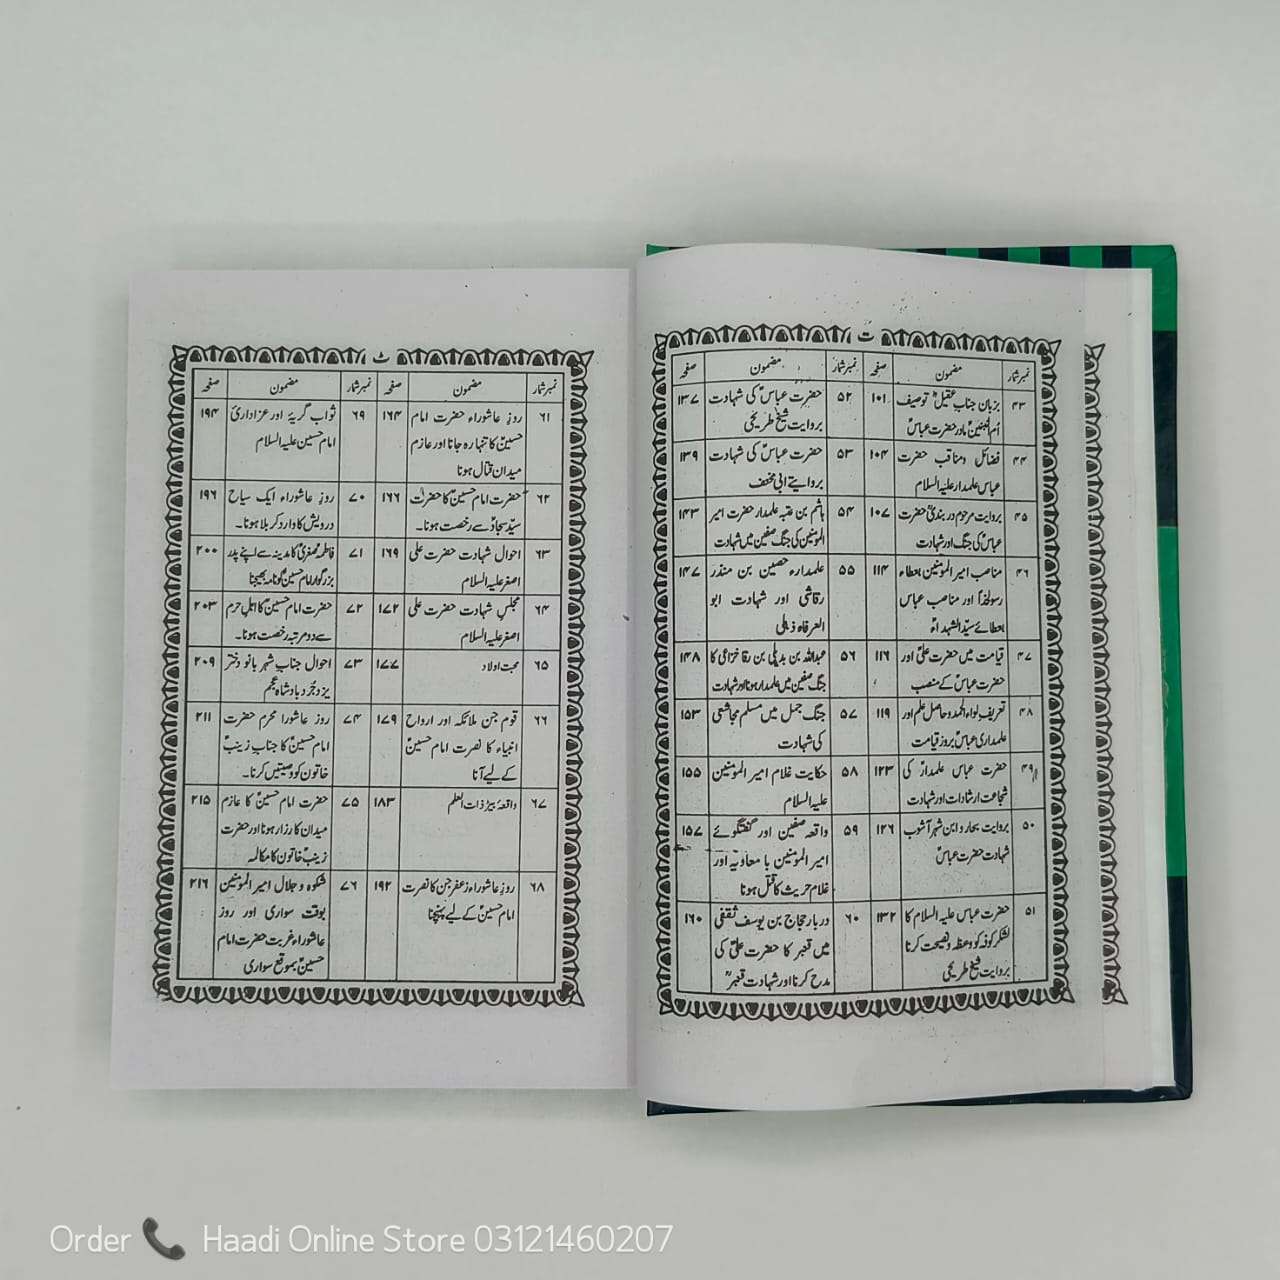 ت
نمبرشمار
مضمون
صفحہ
نمبرشمار
مضمون
صفحہ
۴۳
بزبان جناب عقیلؑ توصیف
۱۰۱
اُم البنینؑ مادر حضرت عباسؑ
۴۴
فضائل ومناقب حضرت
۱۰۴
عباس علمدار علیہ السلام
۴۵
بروایت مرحوم دربندیؒ حضرت
۱۰۷
عباسؑ کی جنگ اور شہادت
۴۶
مناصب امیر المومنینؑ بعطاء
۱۱۴
رسولخداؐ اور مناصب عباس
بعطائے سیّد الشہداءؑ
۴۷
قیامت میں حضرت علیؑ اور
۱۱۶
حضرت عباسؑ کے منصب
۴۸
تعریف لواء الحمد و حامل علم اور
۱۱۹
علمداری عباسؑ بروز قیامت
۴۹
حضرت عباس علمدارؑ کی
۱۲۳
شجاعت ارشادات اور شہادت
۵۰
بروایت بحار و ابن شہر آشوب
۱۲۶
شہادت حضرت عباسؑ
۵۱
حضرت عباس علیہ السلام کا
۱۳۲
لشکر کوفہ کو وعظ و نصیحت کرنا
بروایت شیخ طریحی
۵۲
حضرت عباسؑ کی شہادت
۱۳۷
بروایت شیخ طریحی
۵۳
حضرت عباسؑ کی شہادت
۱۳۹
بروایتے ابی مخنف
۵۴
ہاشم بن عتبہ علمدار حضرت امیر
۱۴۳
المومنین کی جنگ صفین میں شہادت
۵۵
علمدارء حصین بن منذر
۱۴۷
رقاشی اور شہادت ابو
العرفاء ذہلی
۵۶
عبداللہ بن بدیلی بن رقا خزاعی کا
۱۴۸
جنگ صفین میں علمدار ہونا اور شہادت
۵۷
جنگ جمل میں مسلم مجاشعی
۱۵۳
کی شہادت
۵۸
حکایت غلام امیر المومنین
۱۵۵
علیہ السلام
۵۹
واقعہ صفین اور گفتگوئے
۱۵۷
امیر المومنین با معاویہ اور
غلام حریث کا قتل ہونا
۶۰
دربار حجاج بن یوسف ثقفی
۱۶۰
میں قنبر کا حضرت علیؑ کی
مدح کرنا اور شہادت قنبرؒ
ث
نمبرشمار
مضمون
صفحہ
نمبرشمار
مضمون
صفحہ
۶۱
روز عاشوراء حضرت امام
۱۶۴
حسینؑ کا تنہا رہ جانا اور عازم
میدان قتال ہونا
۶۲
حضرت امام حسینؑ کا حضرت
۱۶۶
سیّد سجادؑ سے رخصت ہونا۔
۶۳
احوال شہادت حضرت علی
۱۶۹
اصغر علیہ السلام
۶۴
مجلس شہادت حضرت علی
۱۷۲
اصغر علیہ السلام
۶۵
محبت اولاد
۱۷۷
۶۶
قوم جن ملائکہ اور ارواح
۱۷۹
انبیاء کا نصرت امام حسینؑ
کے لیے آنا
۶۷
واقعۂ بیئر ذات العلم
۱۸۳
۶۸
روز عاشوراء زعفر جن کا نصرت
۱۹۲
امام حسینؑ کے لیے پہنچنا
۶۹
ثواب گریہ اور عزاداریٔ
۱۹۴
امام حسین علیہ السلام
۷۰
روز عاشوراء ایک سیاح
۱۹۶
درویش کا وارد کربلا ہونا۔
۷۱
فاطمہ صغریٰؑ کا مدینہ سے اپنے پدر
۲۰۰
بزرگوار امام حسینؑ کو نامہ بھیجنا
۷۲
حضرت امام حسینؑ کا اہل حرم
۲۰۳
سے دو مرتبہ رخصت ہونا۔
۷۳
احوال جناب شہر بانو دختر
۲۰۹
یزد جُرد بادشاہ عجم
۷۴
روز عاشورا محرم حضرت
۲۱۱
امام حسینؑ کا جناب زینبؑ
خاتون کو وصیتیں کرنا۔
۷۵
حضرت امام حسینؑ کا عازم
۲۱۵
میدان کارزار ہونا اور حضرت
زینبؑ خاتون کا مکالمہ
۷۶
شکوہ و جلال امیر المومنین
۲۱۶
بوقت سواری اور روز
عاشوراء غربت حضرت امام
حسینؑ بموقع سواری
Order Haadi Online Store 03121460207